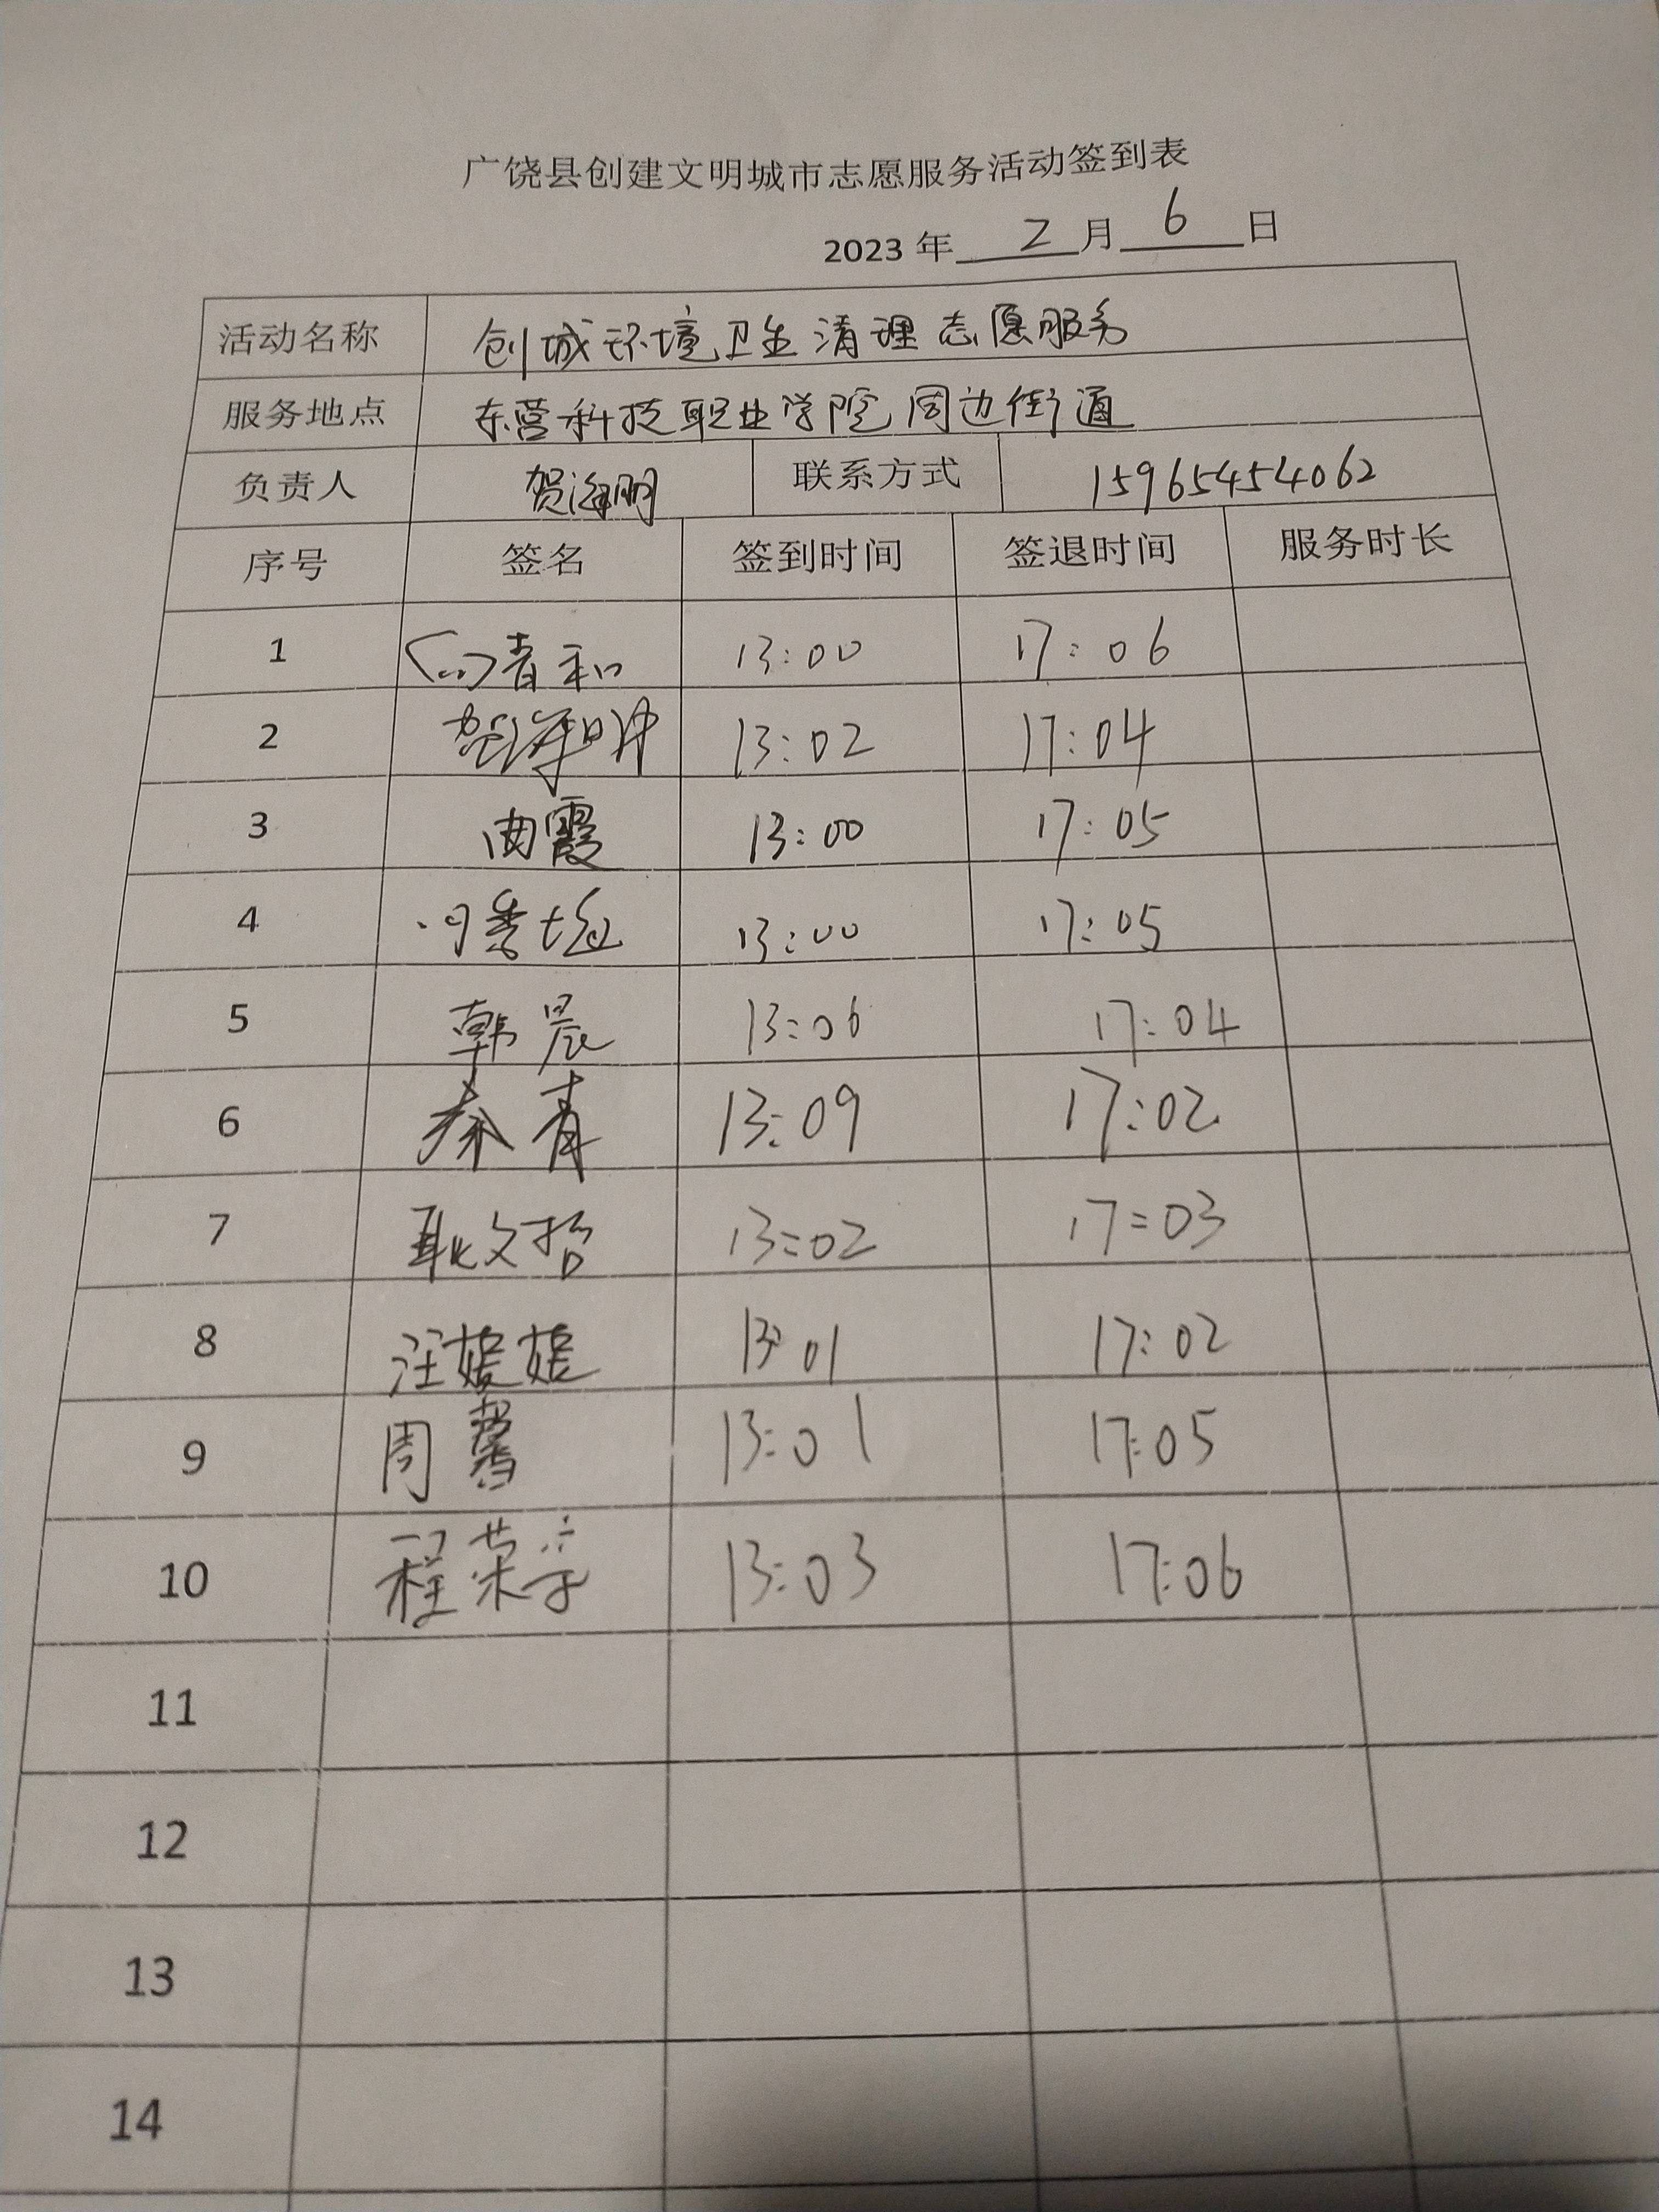 广饶县创建文明城市志愿服务活动签到表
2023 年 2 月 6 日
活动名称 创城环境卫生清理志愿服务
服务地点 东营科技职业学院周边街道
负责人 贺海明 联系方式 15965454062
序号 签名 签到时间 签退时间 服务时长
1 13:00 17:06
2 贺海明 13:02 17:04
3 曲霞 13:00 17:05
4 13:00 17:05
5 韩晨 13:06 17:04
6 秦青 13:09 17:02
7 耿文哲 13:02 17:03
8 汪媛媛 13:01 17:02
9 周馨 13:01 17:05
10 程荣亭 13:03 17:06
11
12
13
14